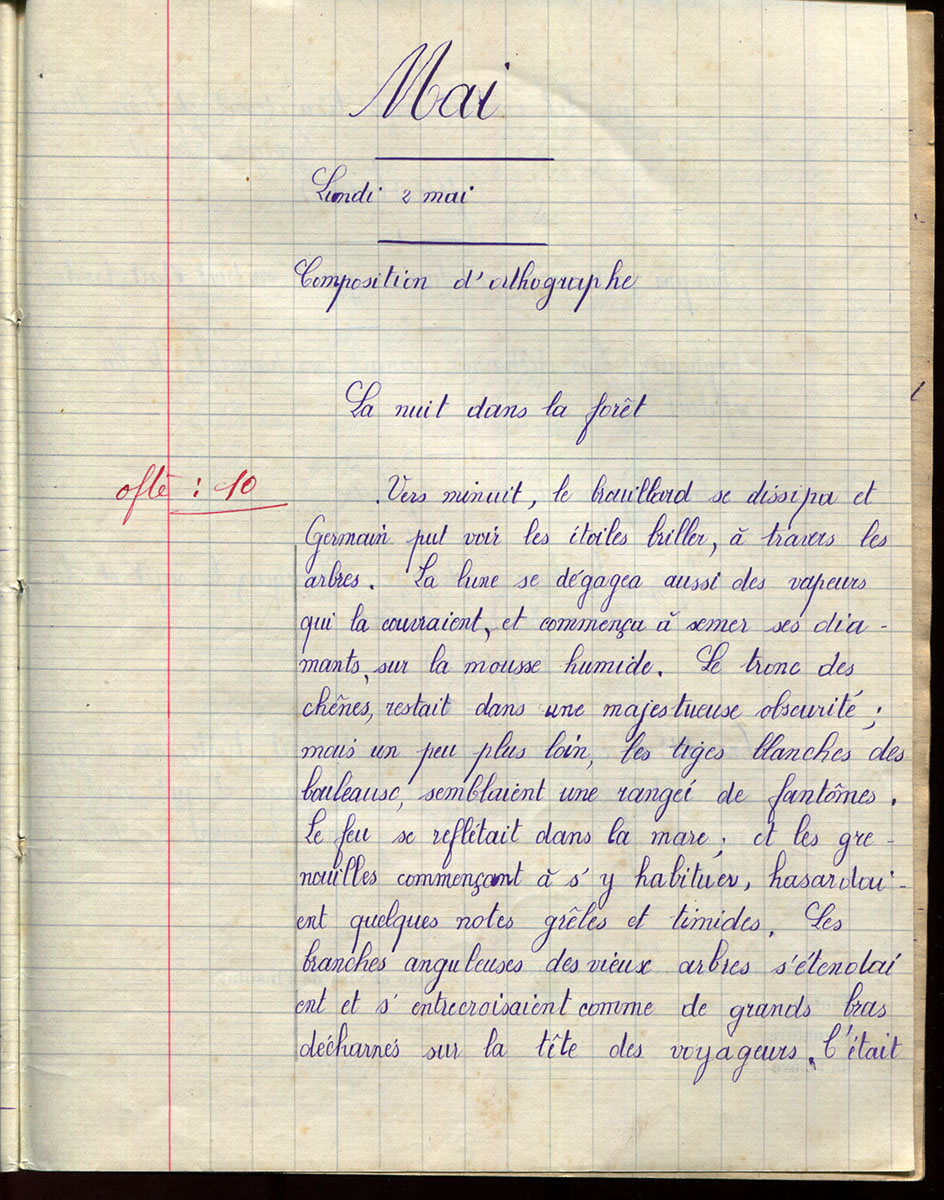 Mai
Lundi 2 mai
Composition d'orthographe
La nuit dans la forêt
ofte : 10
Vers minuit, le brouillard se dissipa et
Germain put voir les étoiles briller, à travers les
arbres. La lune se dégagea aussi des vapeurs
qui la couvraient, et commença à semer ses dia-
mants, sur la mousse humide. Le tronc des
chênes, restait dans une majestueuse obscurité ;
mais un peu plus loin, les tiges blanches des
bouleaux, semblaient une rangeé de fantômes.
Le feu se reflétait dans la mare ; et les gre-
nouilles commençant à s'y habituer, hasardai-
ent quelques notes grêles et timides. Les
branches anguleuses des vieux arbres s'étendai
ent et s'entrecroisaient comme de grands bras
décharnés sur la tête des voyageurs, C'était